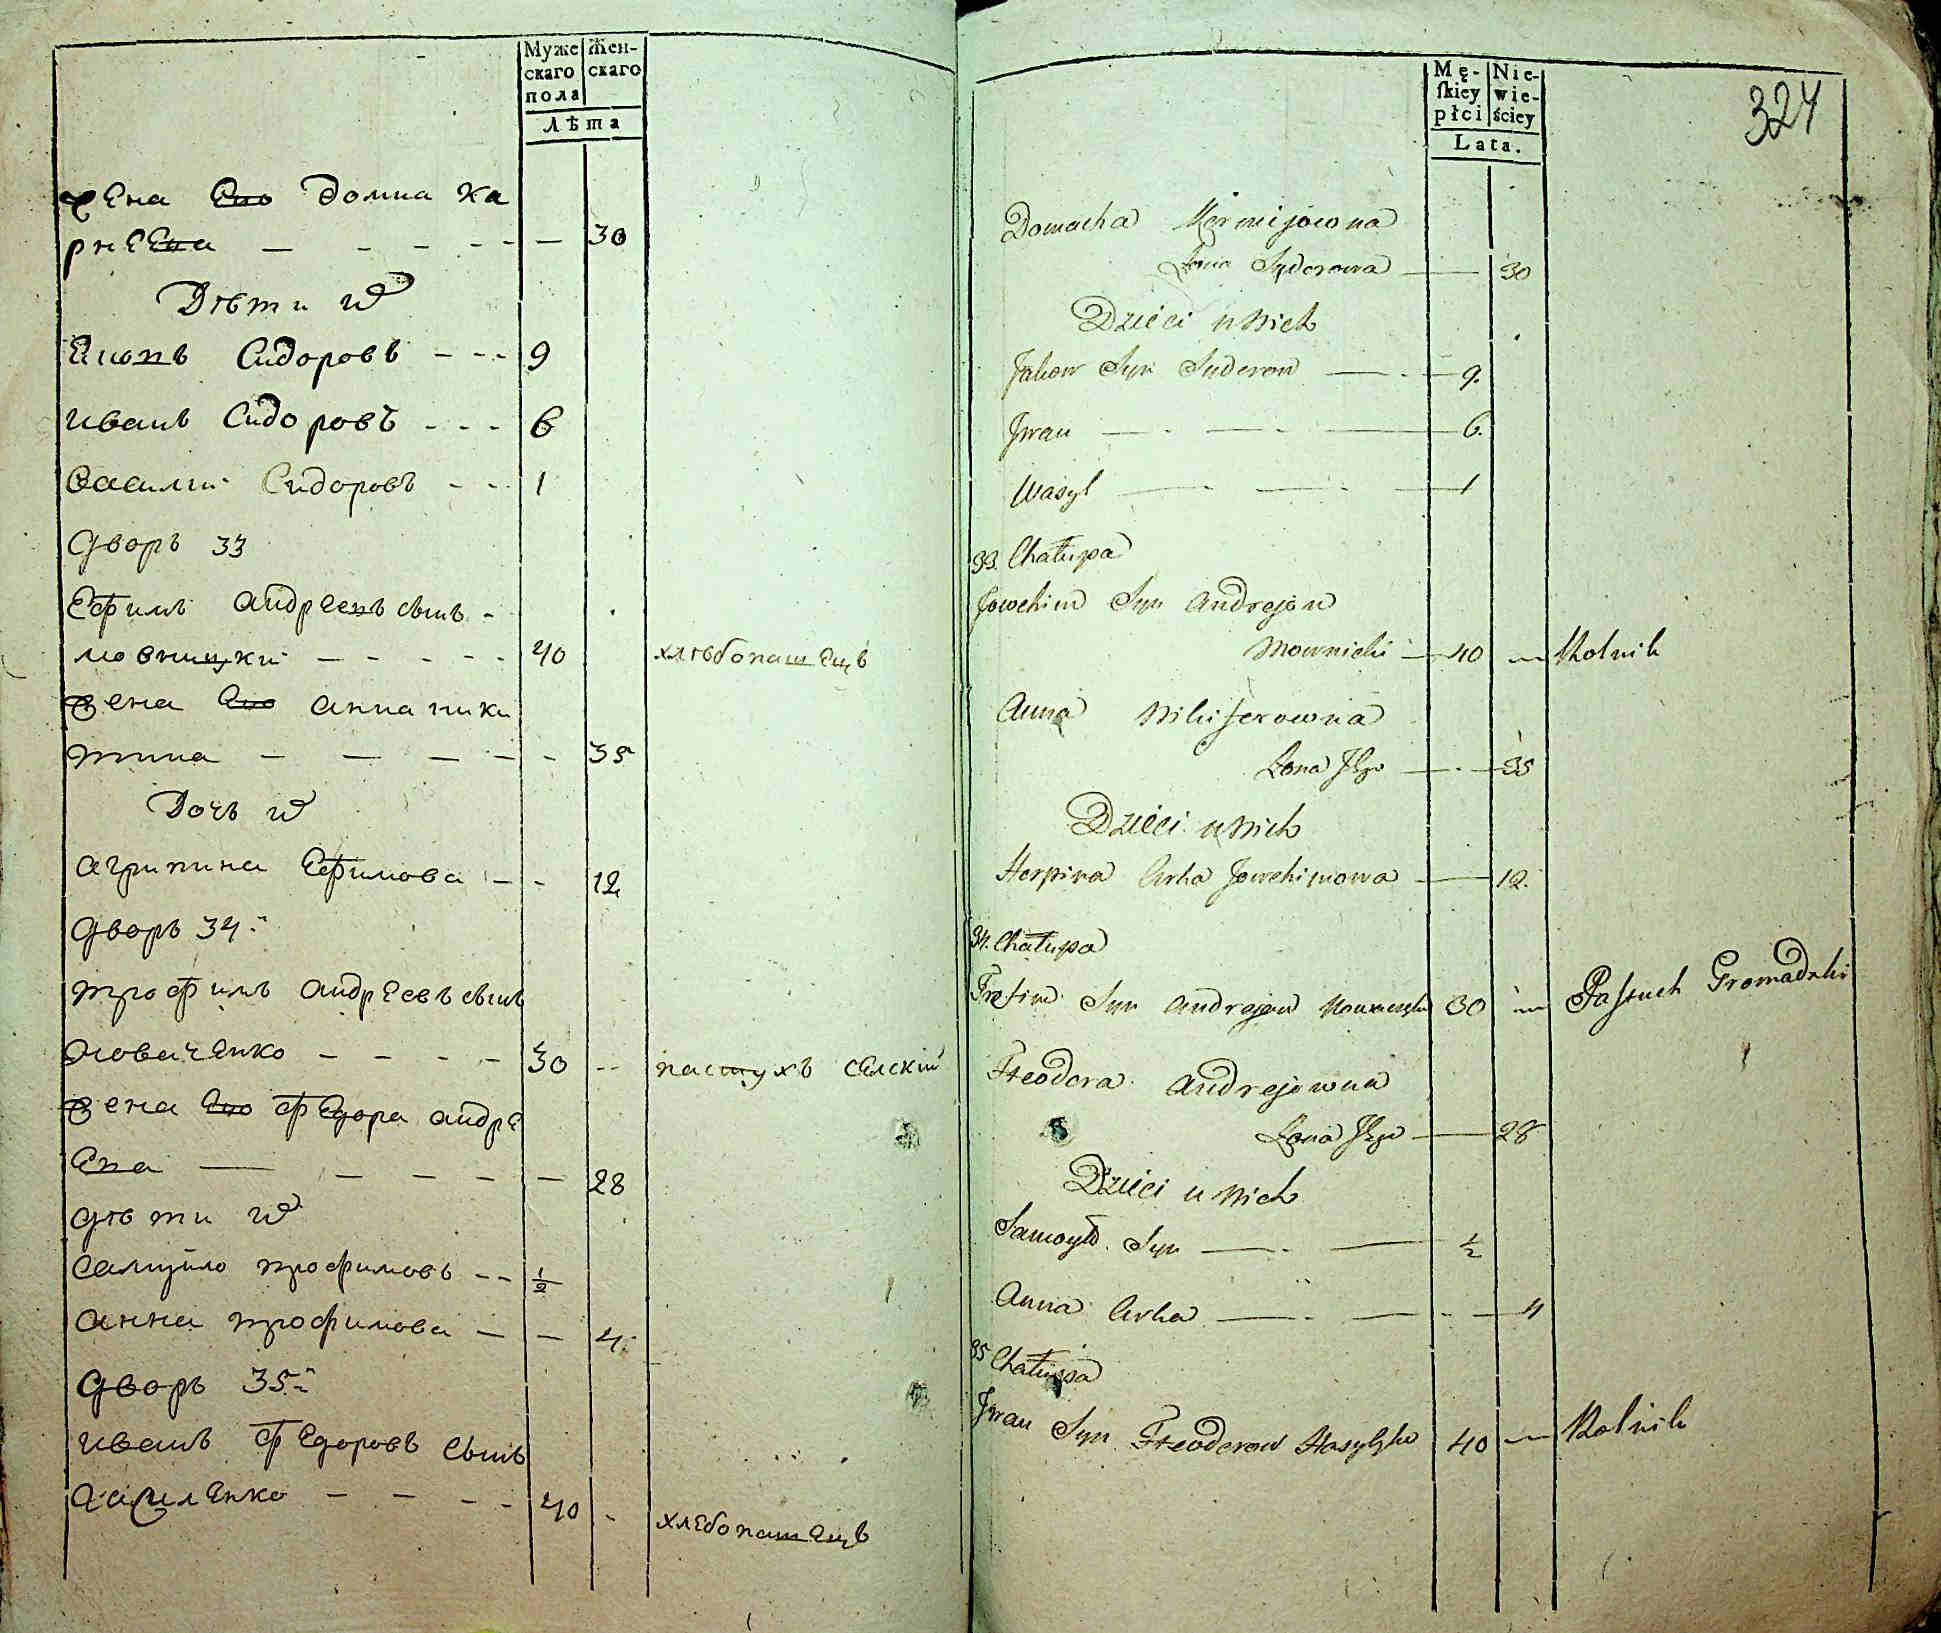 Муже
скаго
пола
Жен-
скаго
лѣта
жена Его домна ка
рнѣева — — — — — — 30
Дѣти их
Сидоровъ - - - 9
иванъ Сидоровъ - - - 6
василий Сидоровъ - - 1
дворъ 33
Ефимъ андреевъ сынъ -
мовницкий - - - - - 40 хлѣбопашецъ
жена Его анна ники
тина — — — - - 35
Дочь их
агрипина Ефимова - - 12
дворъ 34й
трофимъ андреевъ сынъ
- - - - 30 -- пастухъ сельский
жена Его федора андре
Ева — - - - - — 28
дѣти их
самуйло трофимовъ - - 1/2
анна трофимова — — 4
дворъ 35й
иванъ федоровъ сынъ
- - - - 40 - хлебопашецъ
Mę-
ſkiey
płci
Nie-
wie-
ściey
Lata.
324
Domacha
Żona Syderowa — 30
Dzieci u Nich
Jakow Syn Syderow — - — 9.
Jwan — - — - — 6.
Wasyl — - — - — 1
33. Chałupa
Jowchim Syn Andrejow
Mownicki — 40 — Rolnik
Anna Nikiferowna
Żona Jego — - — 35
Dzieci u Nich
Herpina Curka Jowchimowa — 12.
34. Chałupa
Trofim Syn Andrejow 30 — Paſtuch Gromadzki
Fteodora Andrejowna
Żona Jego — 28
Dzieci u Nich
Samoyło Syn — - — 1/2
Anna Curka — - — - — 4
35 Chałupa
Jwan Syn Fteodorow 40 — Rolnik